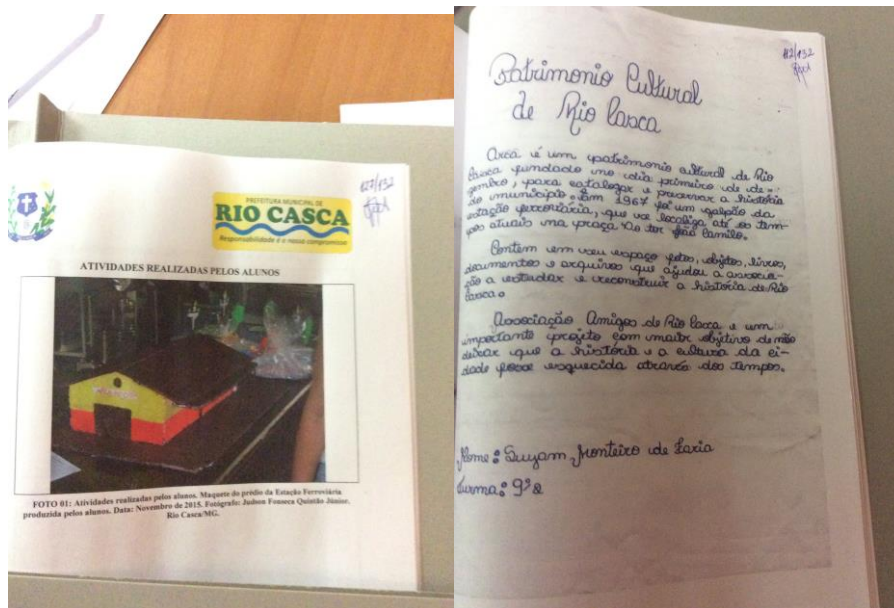 127/132
PREFEITURA MUNICIPAL DE
RIO CASCA
Responsabilidade é o nosso compromisso
ATIVIDADES REALIZADAS PELOS ALUNOS
FOTO 01: Atividades realizadas pelos alunos. Maquete do prédio da Estação Ferroviária
produzida pelos alunos. Data: Novembro de 2015. Fotógrafo: Judson Fonseca Quintão Júnior.
Rio Casca/MG.
Patrimonio Cultural
de Rio Casca
Arca é um patrimonio cultural de Rio
Casca fundado no dia primeiro de de-
zembro, para catalogar e preservar a história
do município. Em 1967 foi um galpão da
estação ferroviária, que se localiza até os tem-
pos atuais na praça João Camilo.
Contem em seu espaço fotos, objetos, livros,
documentos e arquivos que ajudou a associa-
ção a estudar e reconstruir a história de Rio
Casca.
Associação Amigos de Rio Casca e um
importante projeto com maior objetivo de não
deixar que a história e a cultura da ci-
dade fosse esquecida através dos tempos.
Nome: Suyam Monteiro de Faria
Turma: 9º